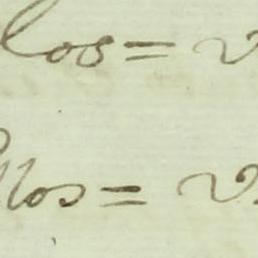 los= v
llos= v.